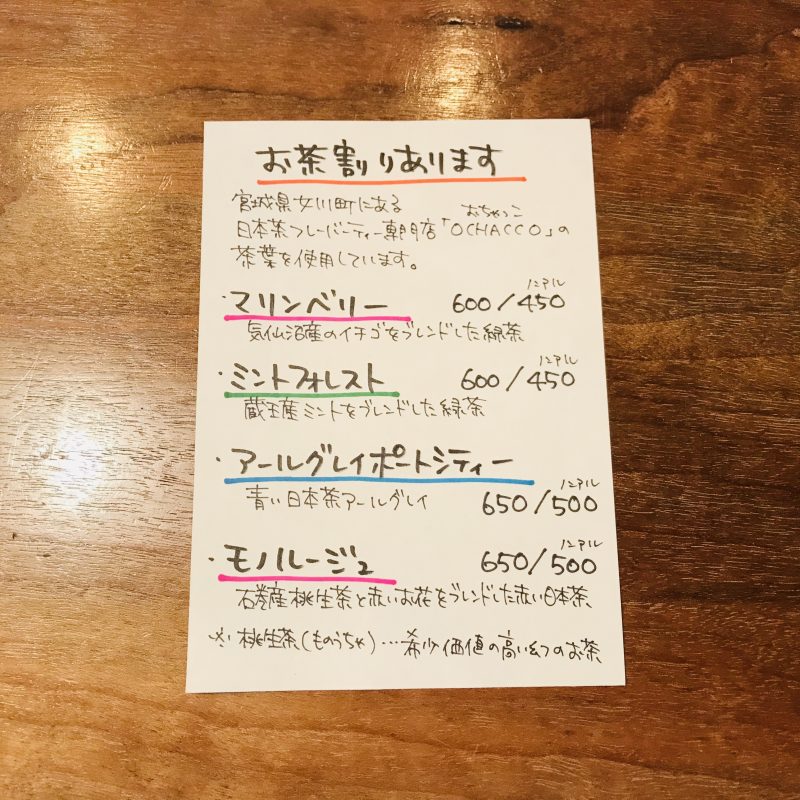 お茶割りあります
宮城県女川町にある
おちゃっこ
日本茶フレーバーティー専門店「OCHACCO」の
茶葉を使用しています。
ノンアル
・マリンベリー 600/450
気仙沼産のイチゴをブレンドした緑茶
ノンアル
・ミントフォレスト 600/450
蔵王産ミントをブレンドした緑茶
・アールグレイポートシティー
ノンアル
青い日本茶アールグレイ 650/500
ノンアル
・モノルージュ 650/500
石巻産桃生茶と赤いお花をブレンドした赤い日本茶
※桃生茶(ものうちゃ)…希少価値の高い幻のお茶